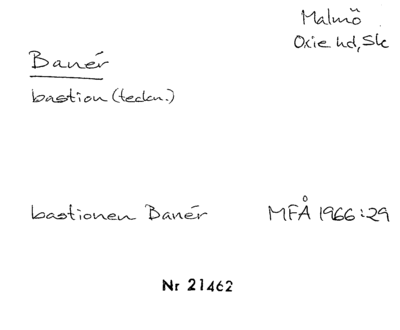 Malmö
Oxie hd, Sk
Banér
bastion (teckn.)
bastionen Banér MFÅ 1966:29
Nr 21462